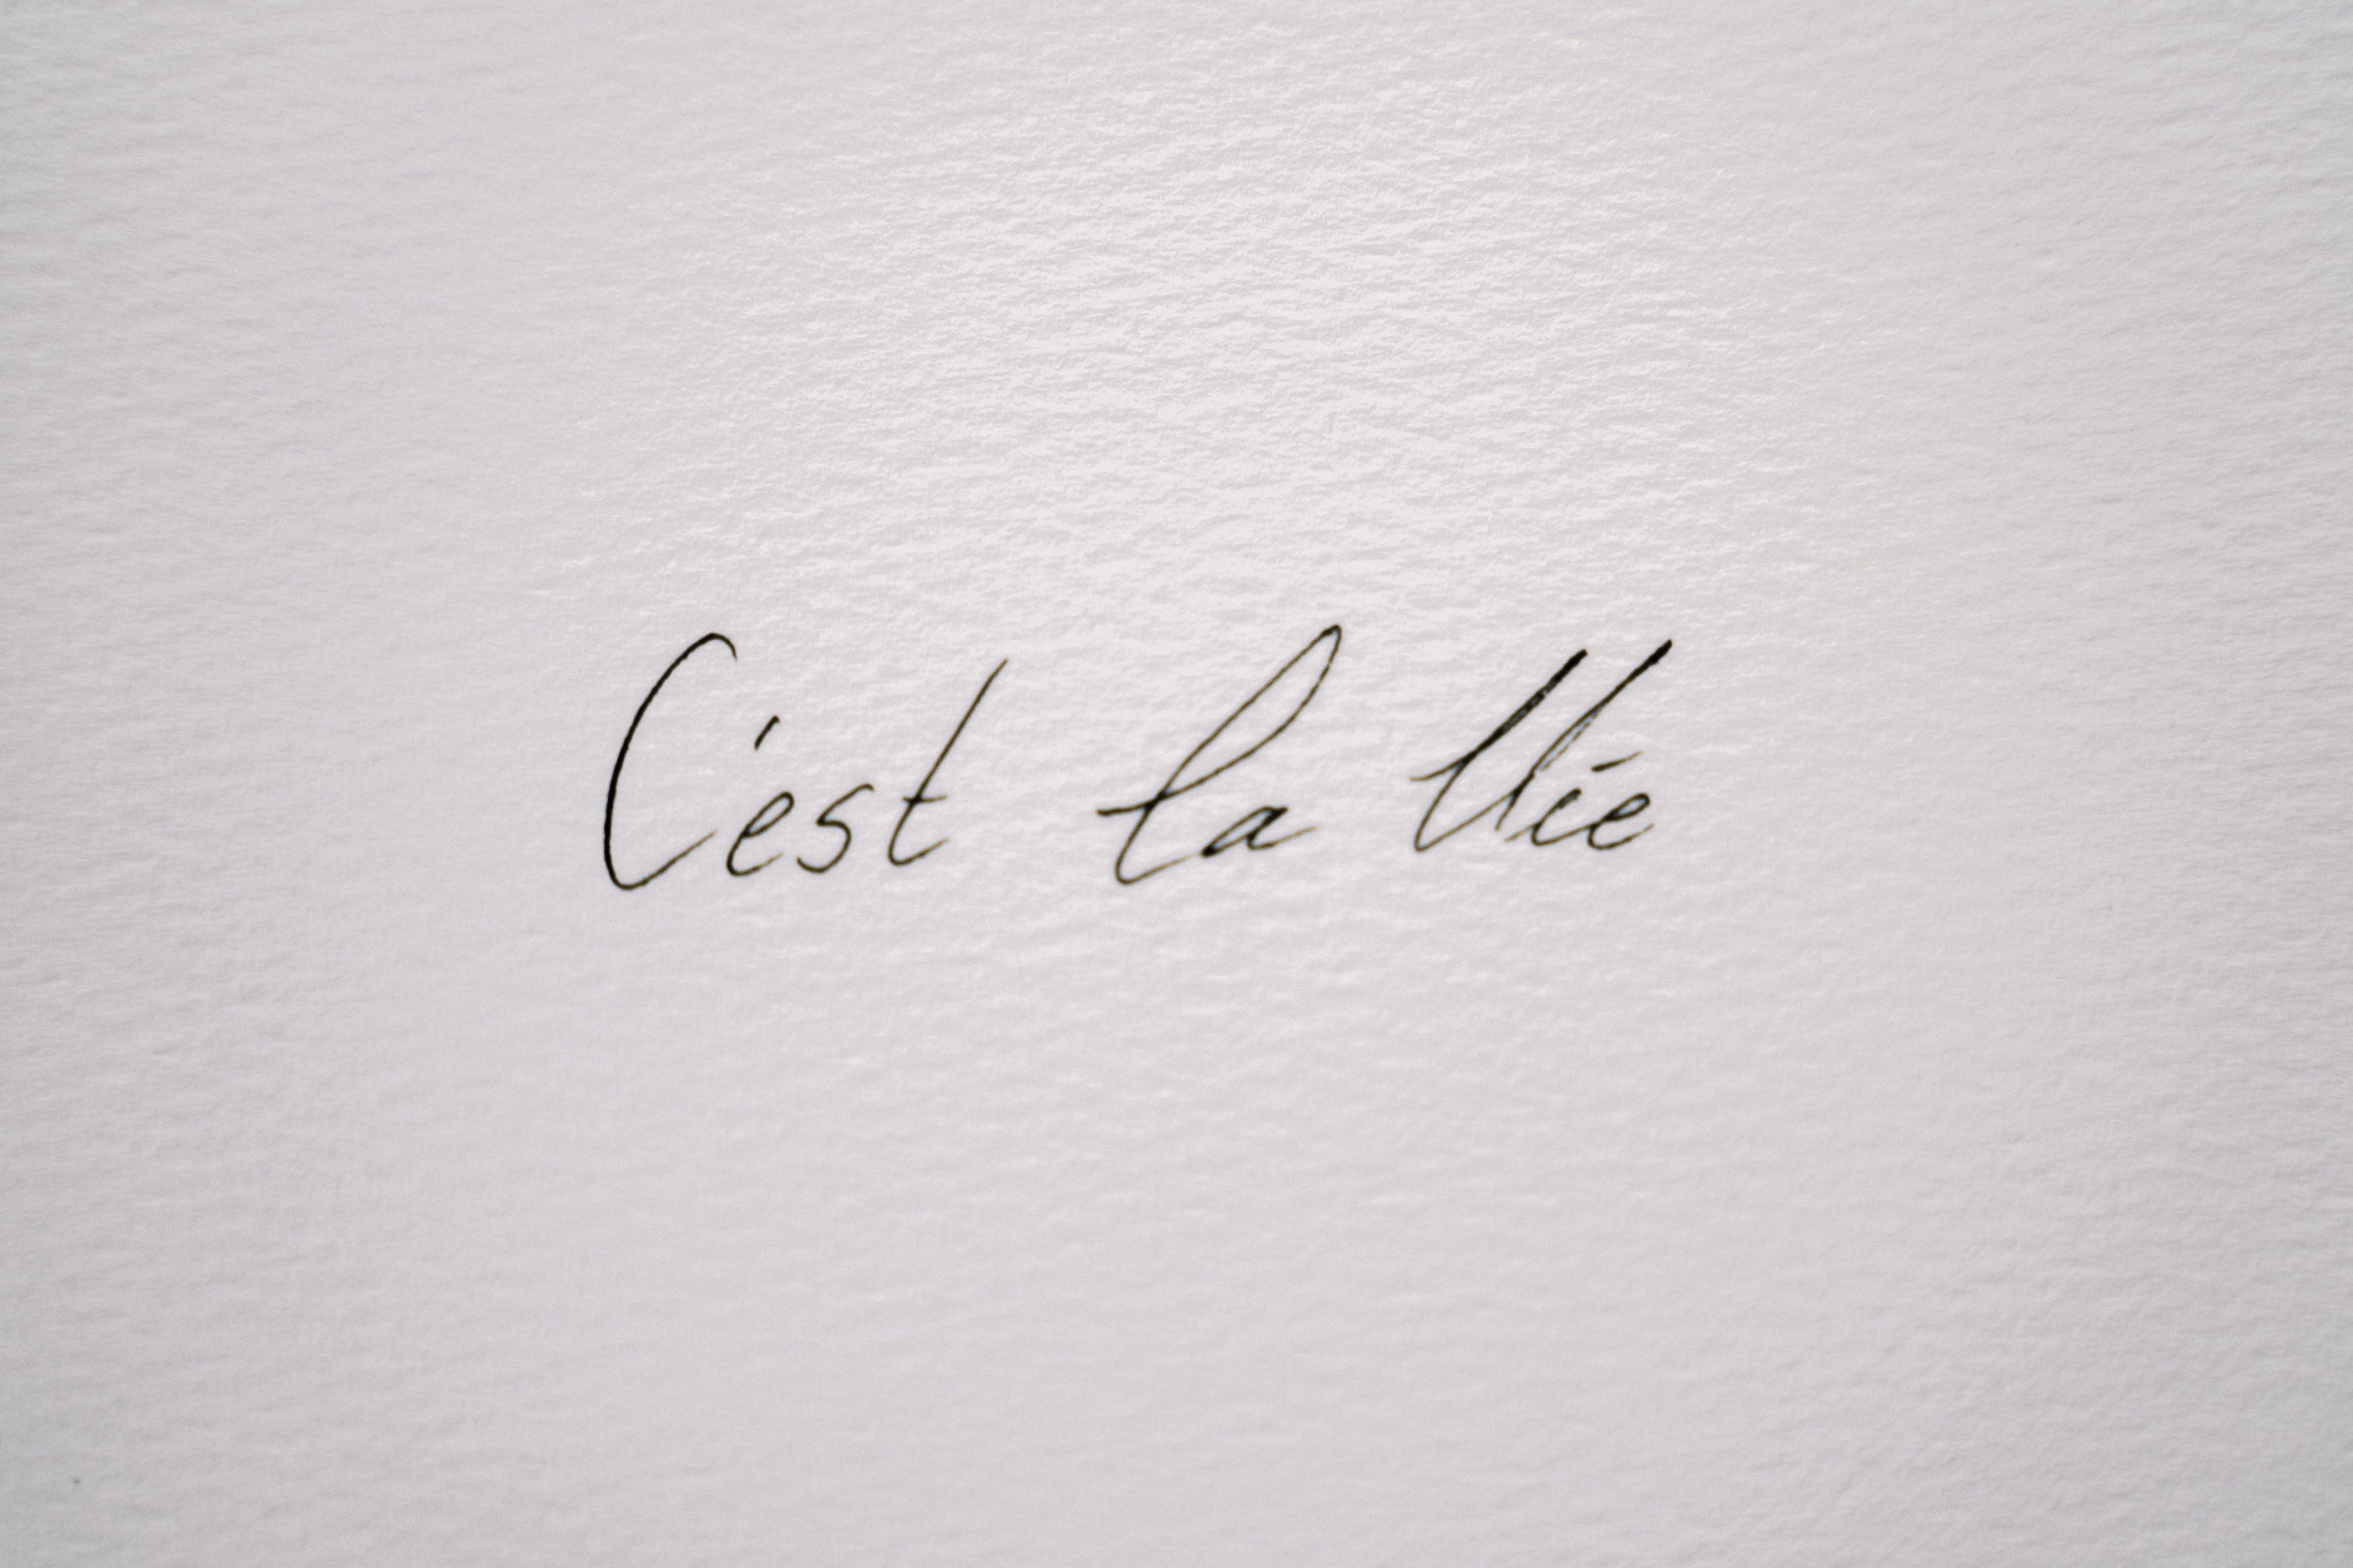 C'est la Vie